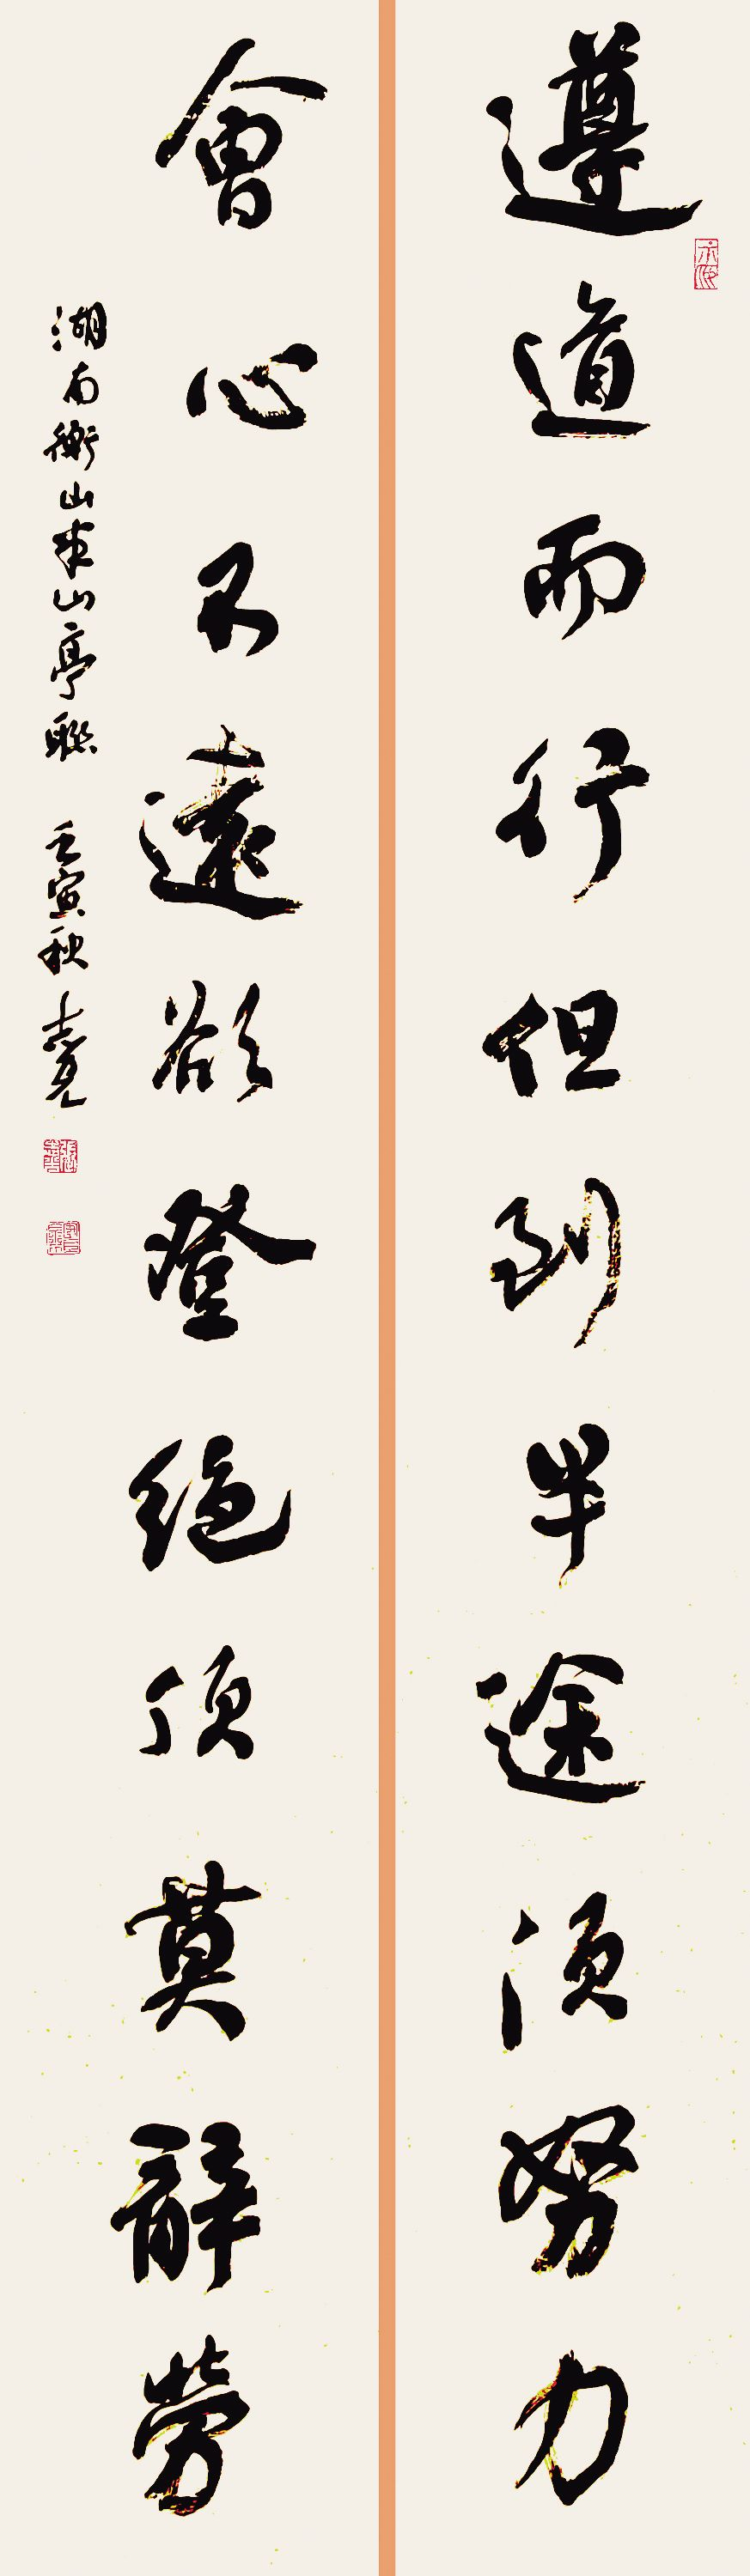 遵道而行但到半途須努力
會心不遠欲登絕頂莫辭勞
湖南衡山半山亭聯 壬寅秋 志亮